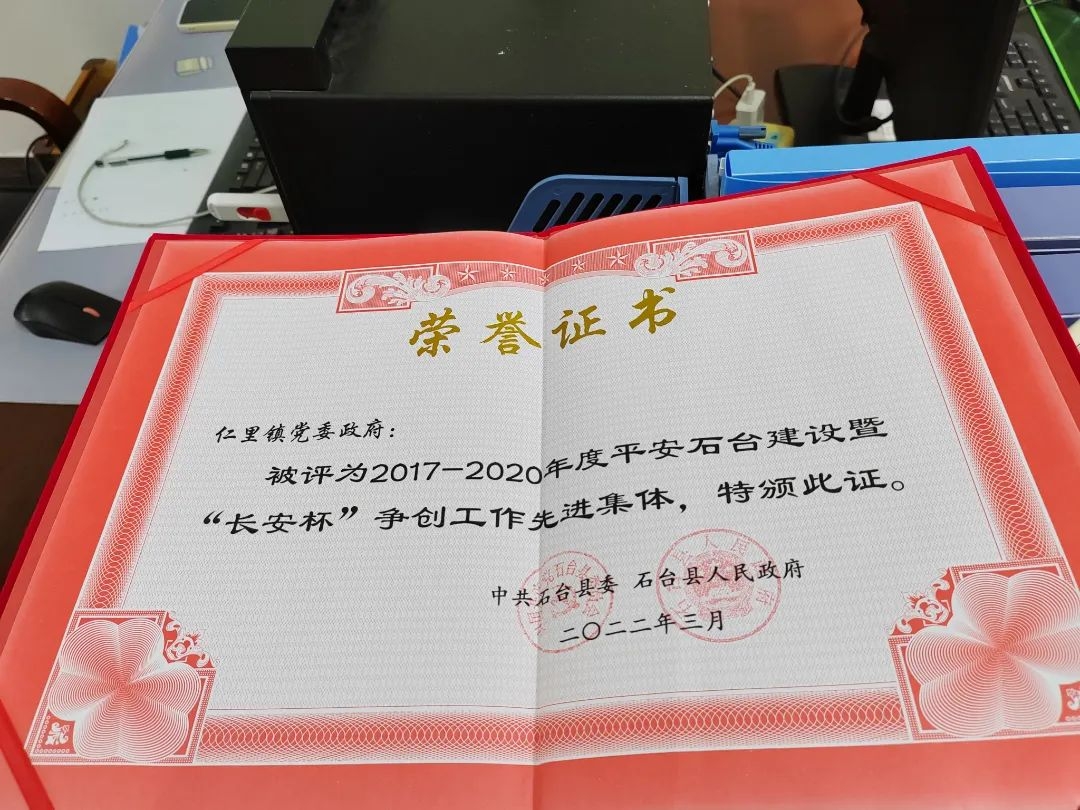 荣誉证书
仁里镇党委政府：
被评为2017—2020年度平安石台建设暨
“长安杯”争创工作先进集体，特颁此证。
中共石台县委 石台县人民政府
二〇二二年三月